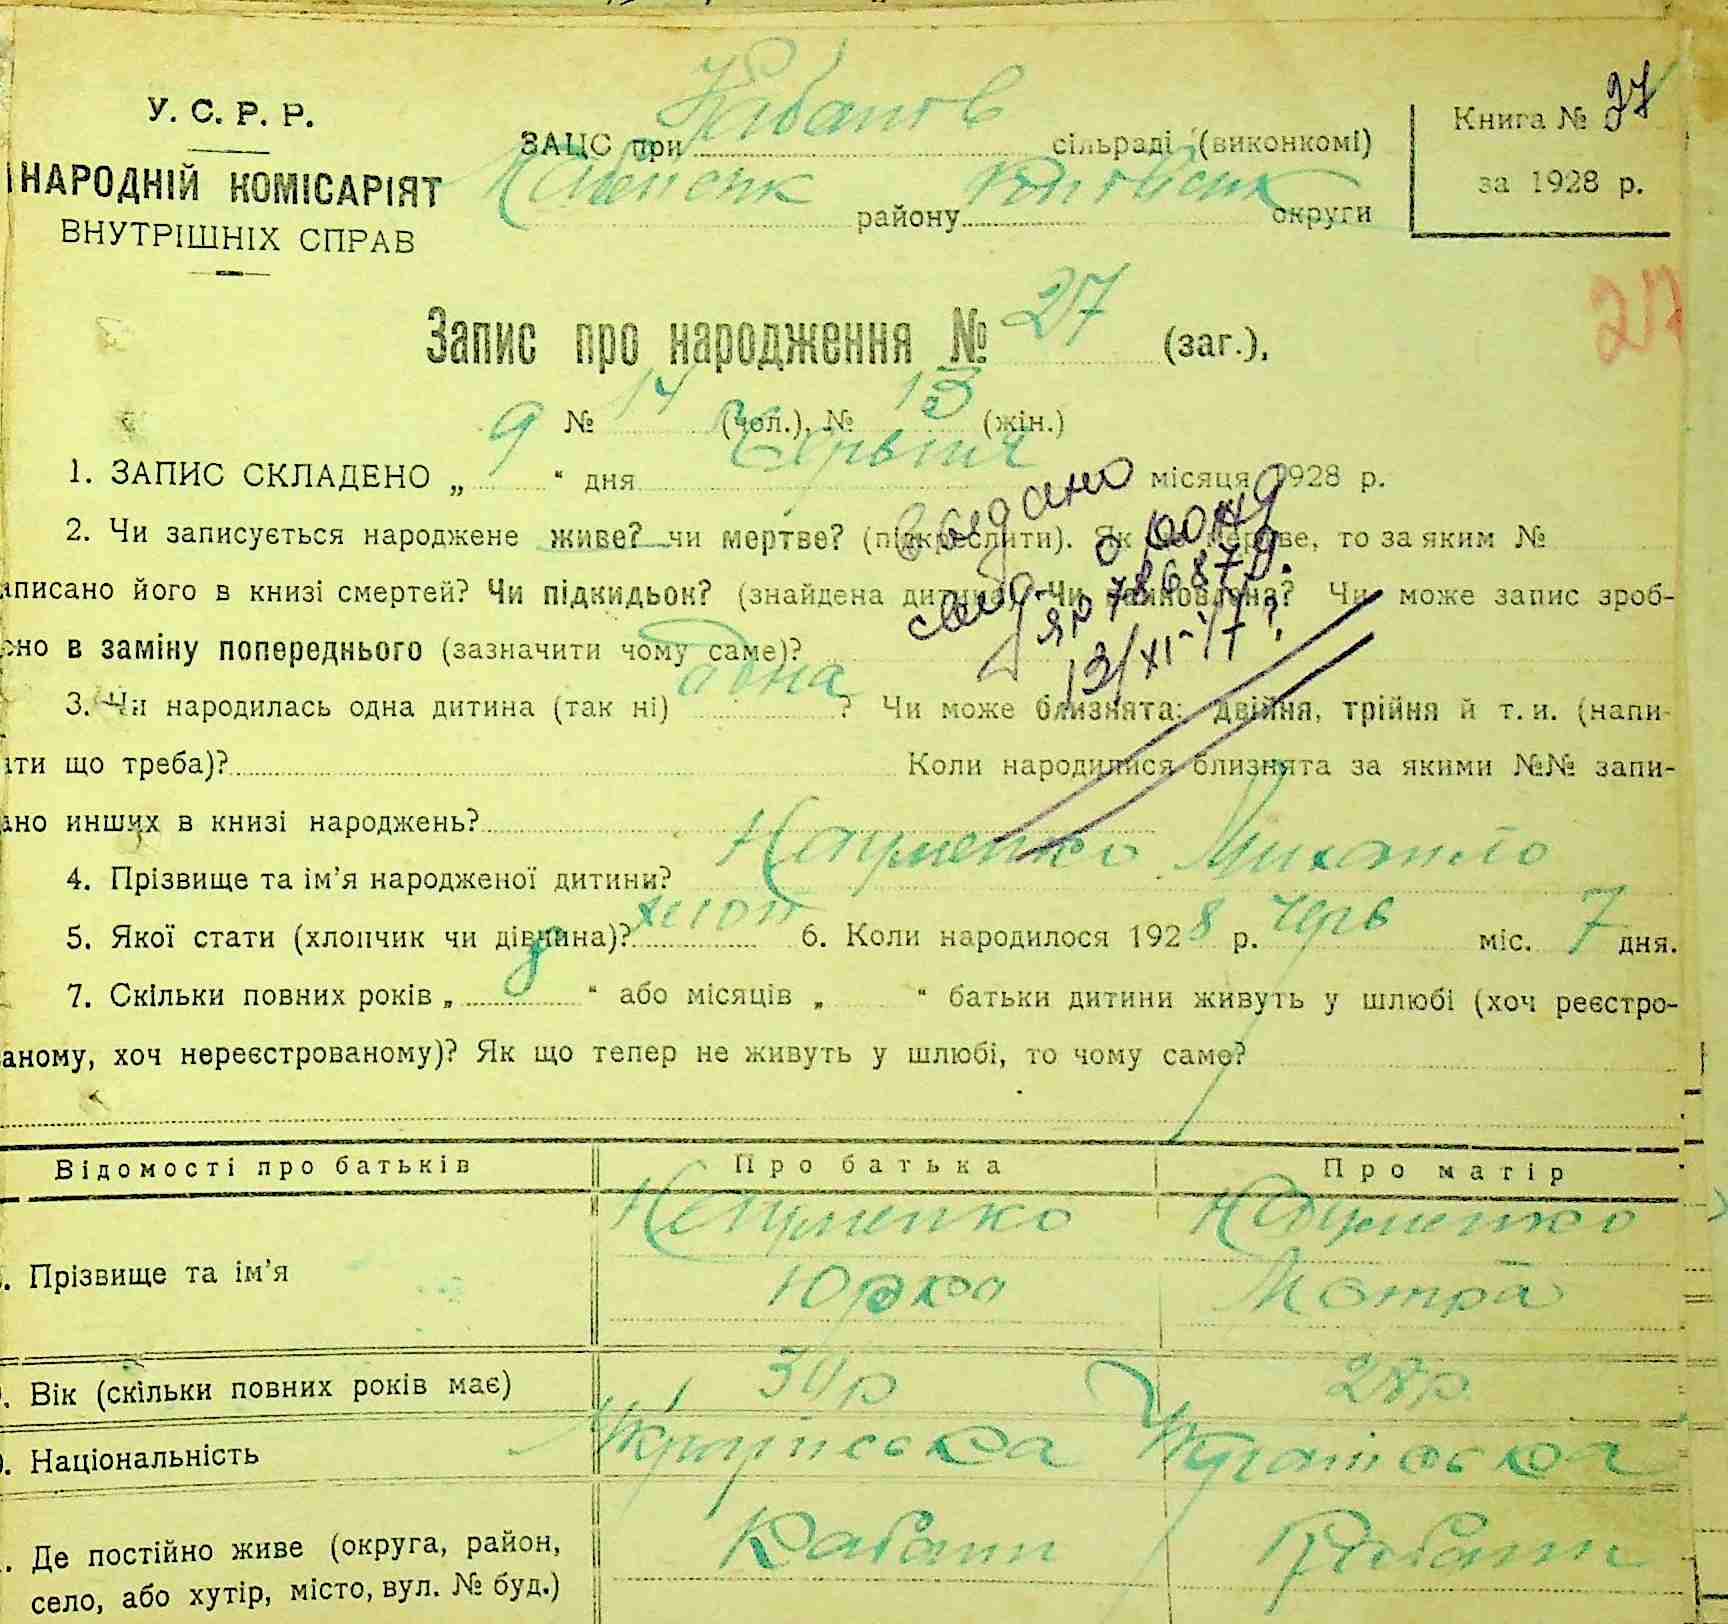 У. С. Р. Р.
НАРОДНІЙ КОМІСАРІЯТ
ВНУТРІШНІХ СПРАВ
ЗАЦС при сільраді (виконкомі)
району округи
Книга № 27
за 1928 р.
Запис про народження № 27 (заг.),
27
№ 14 (чол.), № 13 (жін.)
1. ЗАПИС СКЛАДЕНО „ 9 “ дня Червня місяця 1928 р.
2. Чи записується народжене живе? чи мертве? (підкреслити). Як що мертве, то за яким №
аписано його в книзі смертей? Чи підкидьок? (знайдена дитина) Чи Чи може запис зроб-
ено в заміну попереднього (зазначити чому саме)?
видано
12/XI-
3. Чи народилась одна дитина (так ні) одна ? Чи може близнята: двійня, трійня й т. и. (напи-
ати що треба)? Коли народилися близнята за якими №№ запи-
ано инших в книзі народжень?
4. Прізвище та ім’я народженої дитини? Науменко Михайло
5. Якої стати (хлопчик чи дівчина)? хлоп 6. Коли народилося 1928 р. черв міс. 7 дня.
7. Скільки повних років „ 8 “ або місяців „ “ батьки дитини живуть у шлюбі (хоч реєстро-
аному, хоч нереєстрованому)? Як що тепер не живуть у шлюбі, то чому саме?
Відомості про батьків Про батька Про матір
. Прізвище та ім’я Науменко Науменко
Юрко Мотра
. Вік (скільки повних років має) 28 р
. Національність Українська Українська
. Де постійно живе (округа, район, Кабани Кабани
село, або хутір, місто, вул. № буд.)